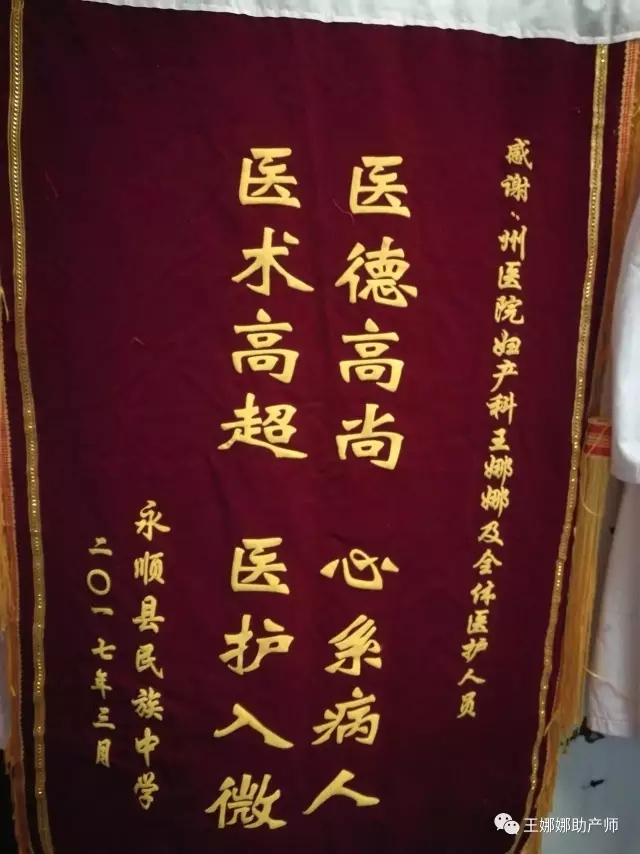 感谢:州医院妇产科王娜娜及全体医护人员
医德高尚 心系病人
医术高超 医护入微
永顺县民族中学
二〇一七年三月
王娜娜助产师